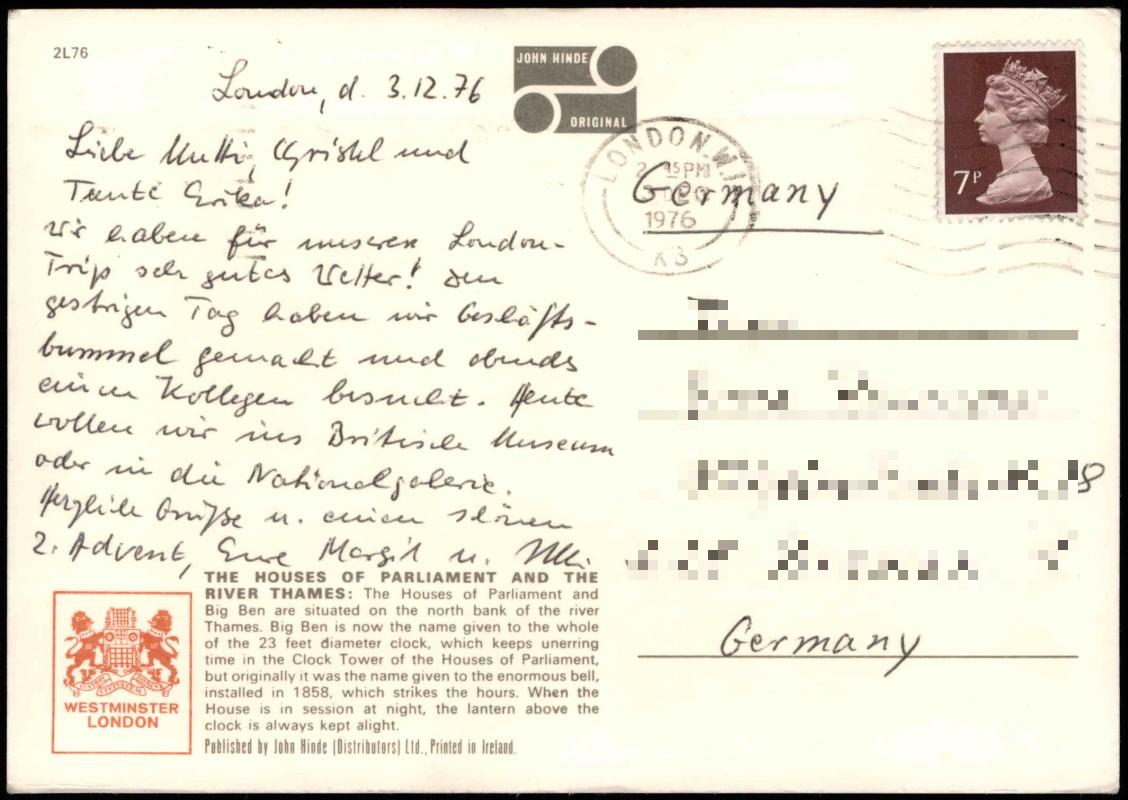 2L76
London, d. 3.12.76
JOHN HINDE
ORIGINAL
Liebe Mutti, Christel und
Tante Erika!
Wir haben für unseren London-
Trip sehr gutes Wetter! Den
gestrigen Tag haben wir Geschäfts-
bummel gemacht und abends
einen Kollegen besucht. Heute
wollen wir ins Britische Museum
oder in die Nationalgalerie.
Herzliche Grüße u. einen schönen
2. Advent, Eure Margit u.
THE HOUSES OF PARLIAMENT AND THE
RIVER THAMES: The Houses of Parliament and
Big Ben are situated on the north bank of the river
Thames. Big Ben is now the name given to the whole
of the 23 feet diameter clock, which keeps unerring
time in the Clock Tower of the Houses of Parliament,
but originally it was the name given to the enormous bell,
installed in 1858, which strikes the hours. When the
House is in session at night, the lantern above the
clock is always kept alight.
Published by John Hinde (Distributors) Ltd., Printed in Ireland.
WESTMINSTER
LONDON
LONDON.W.1
45PM
DEC
1976
K3
7P
Germany
8
Germany